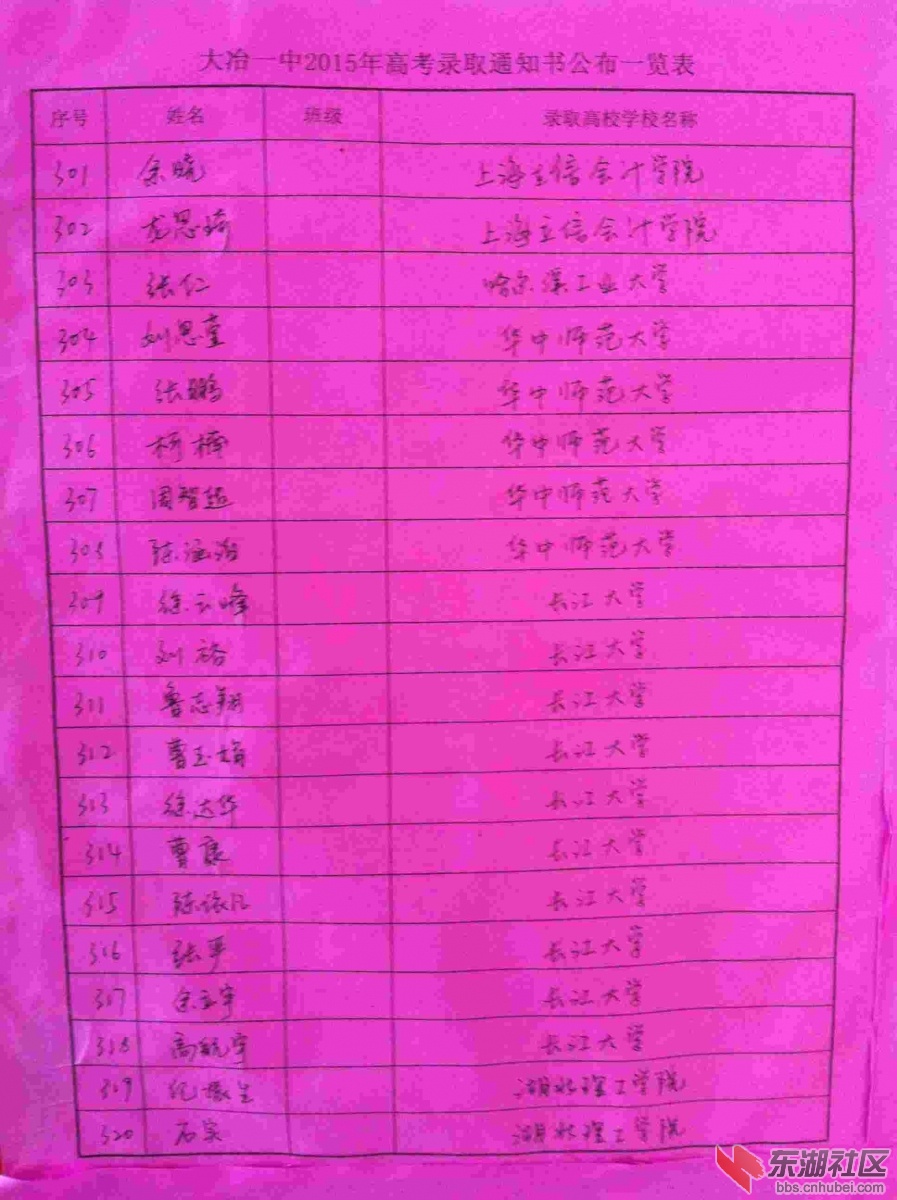 大冶一中2015年高考录取通知书公布一览表
序号 姓名 班级 录取高校学校名称
301 余晓 上海立信会计学院
302 龙思琦 上海立信会计学院
303 张仁 哈尔滨工业大学
304 刘思奎 华中师范大学
305 张鹏 华中师范大学
306 柯楠 华中师范大学
307 周智超 华中师范大学
308 陈 华中师范大学
309 徐云峰 长江大学
310 刘裕 长江大学
311 鲁志翔 长江大学
312 曹玉梅 长江大学
313 徐达华 长江大学
314 曹康 长江大学
315 陈依凡 长江大学
316 张平 长江大学
317 余立宇 长江大学
318 高航宇 长江大学
319 纪振生 湖北理工学院
320 石实 湖北理工学院
东湖社区
bbs.cnhubei.com